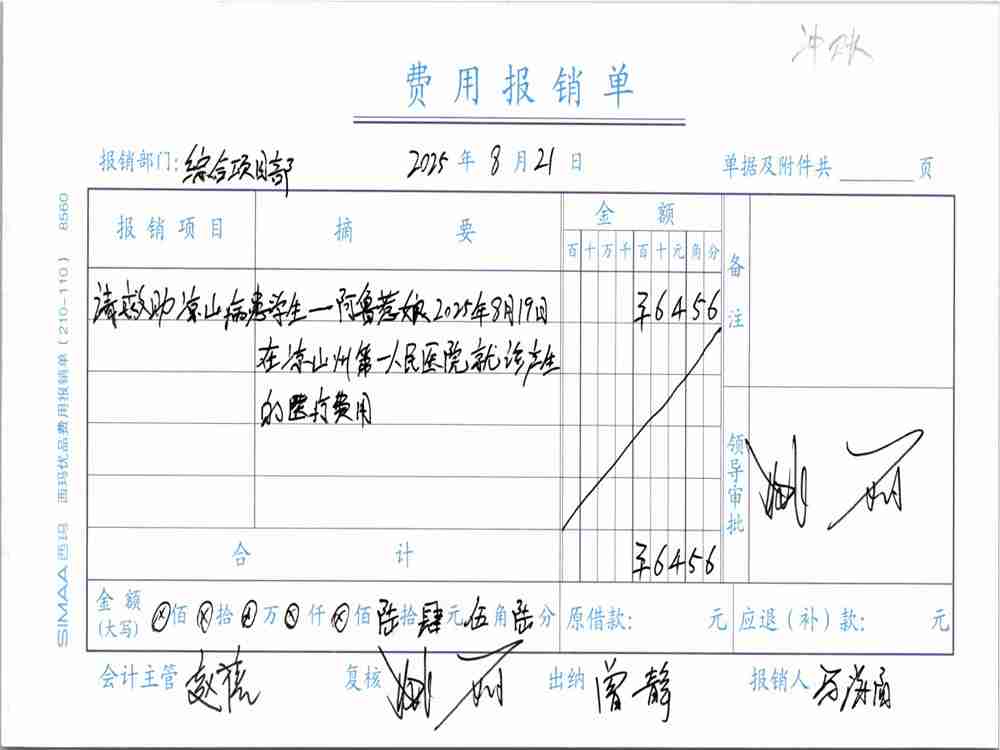 冲账
费用报销单
报销部门: 综合项目部 2025年8月21日 单据及附件共 页
报销项目 摘要 金额 备注
百十万千百十元角分
请救助凉山病患学生一阿鲁惹娘2025年8月19日 ¥6456
在凉山州第一人民医院就诊产生
的医疗费用
领导审批
合计 ¥6456
金额(大写) ⊗佰⊗拾⊗万⊗仟⊗佰陆拾肆元伍角陆分 原借款: 元 应退(补)款: 元
会计主管 复核 出纳 曾静 报销人
SIMAA 西玛 西玛优品费用报销单(210-110) 8560